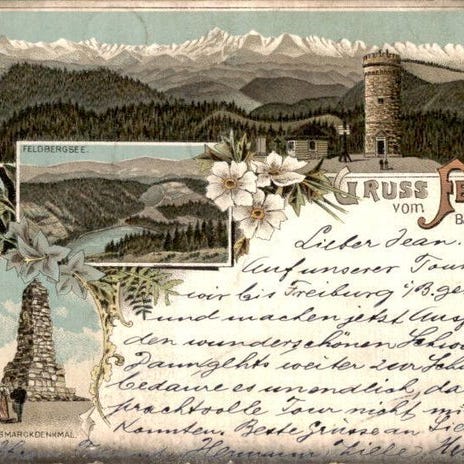 FELDBERGSEE.
GRUSS
VOM
FE
B
Lieber Jean.
Auf unserer Tour
wir bis Freiburg i/B. ge
und machen jetzt Ausf
den wunderschönen Schwa
Dann gehts weiter zur Sch
Bedaure es unendlich, da
prachtvolle Tour nicht mi
konnten. Beste Grüsse an Lie
Hermann
SMARCKDENKMAL.